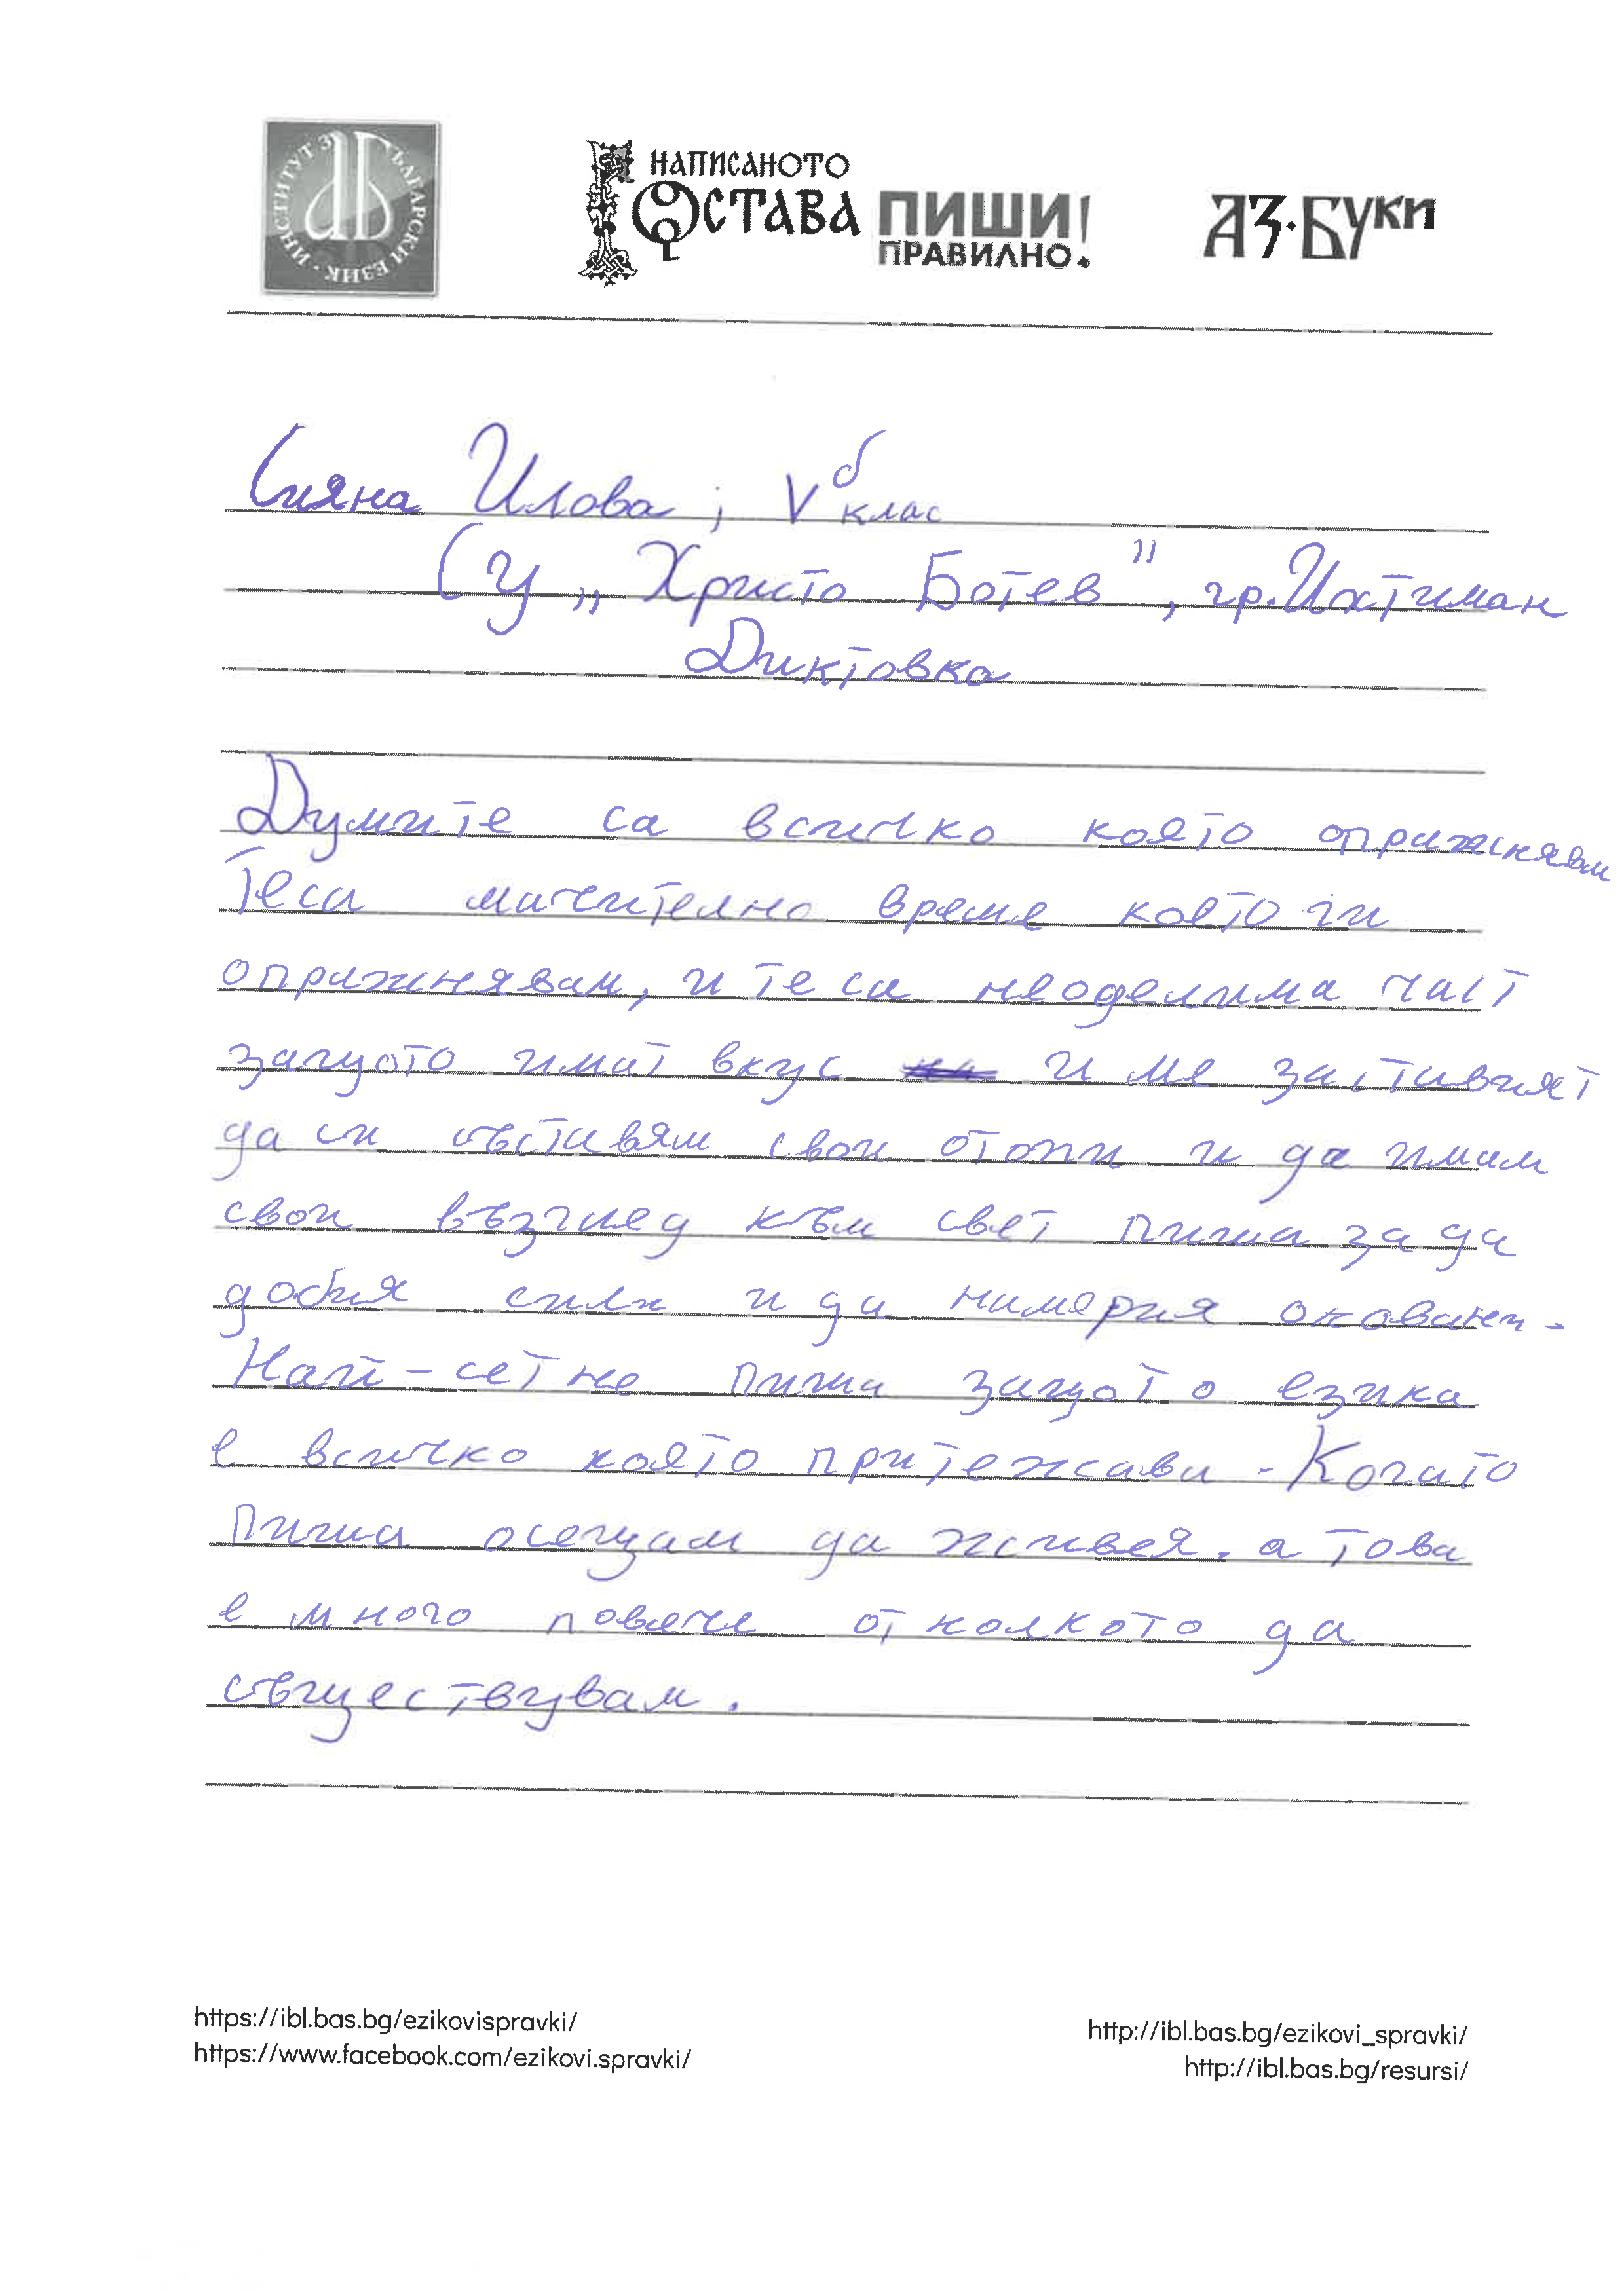 ИНСТИТУТ ЗА БЪЛГАРСКИ ЕЗИК
НАПИСАНОТО
ОСТАВА
ПИШИ!
ПРАВИЛНО.
АЗ·БУКИ
Сияна Илова ; V б клас
СУ „Христо Ботев", гр. Ихтиман
Диктовка
Думите са всичко която оприжнявам
Теса мачително време което ги
оприжнявам, и те са неоделима част
защото имат вкус и ме заставият
да си съставям свои отопи и да имам
свои възглед към свет пиша за да
добия сили и да намерия
Най-сетне пиша защото езика
е всичко която притежава. Когато
пиша осещам да живея. а това
е много повече отколкото да
съществувам.
https://ibl.bas.bg/ezikovispravki/
https://www.facebook.com/ezikovi.spravki/
http://ibl.bas.bg/ezikovi_spravki/
http://ibl.bas.bg/resursi/